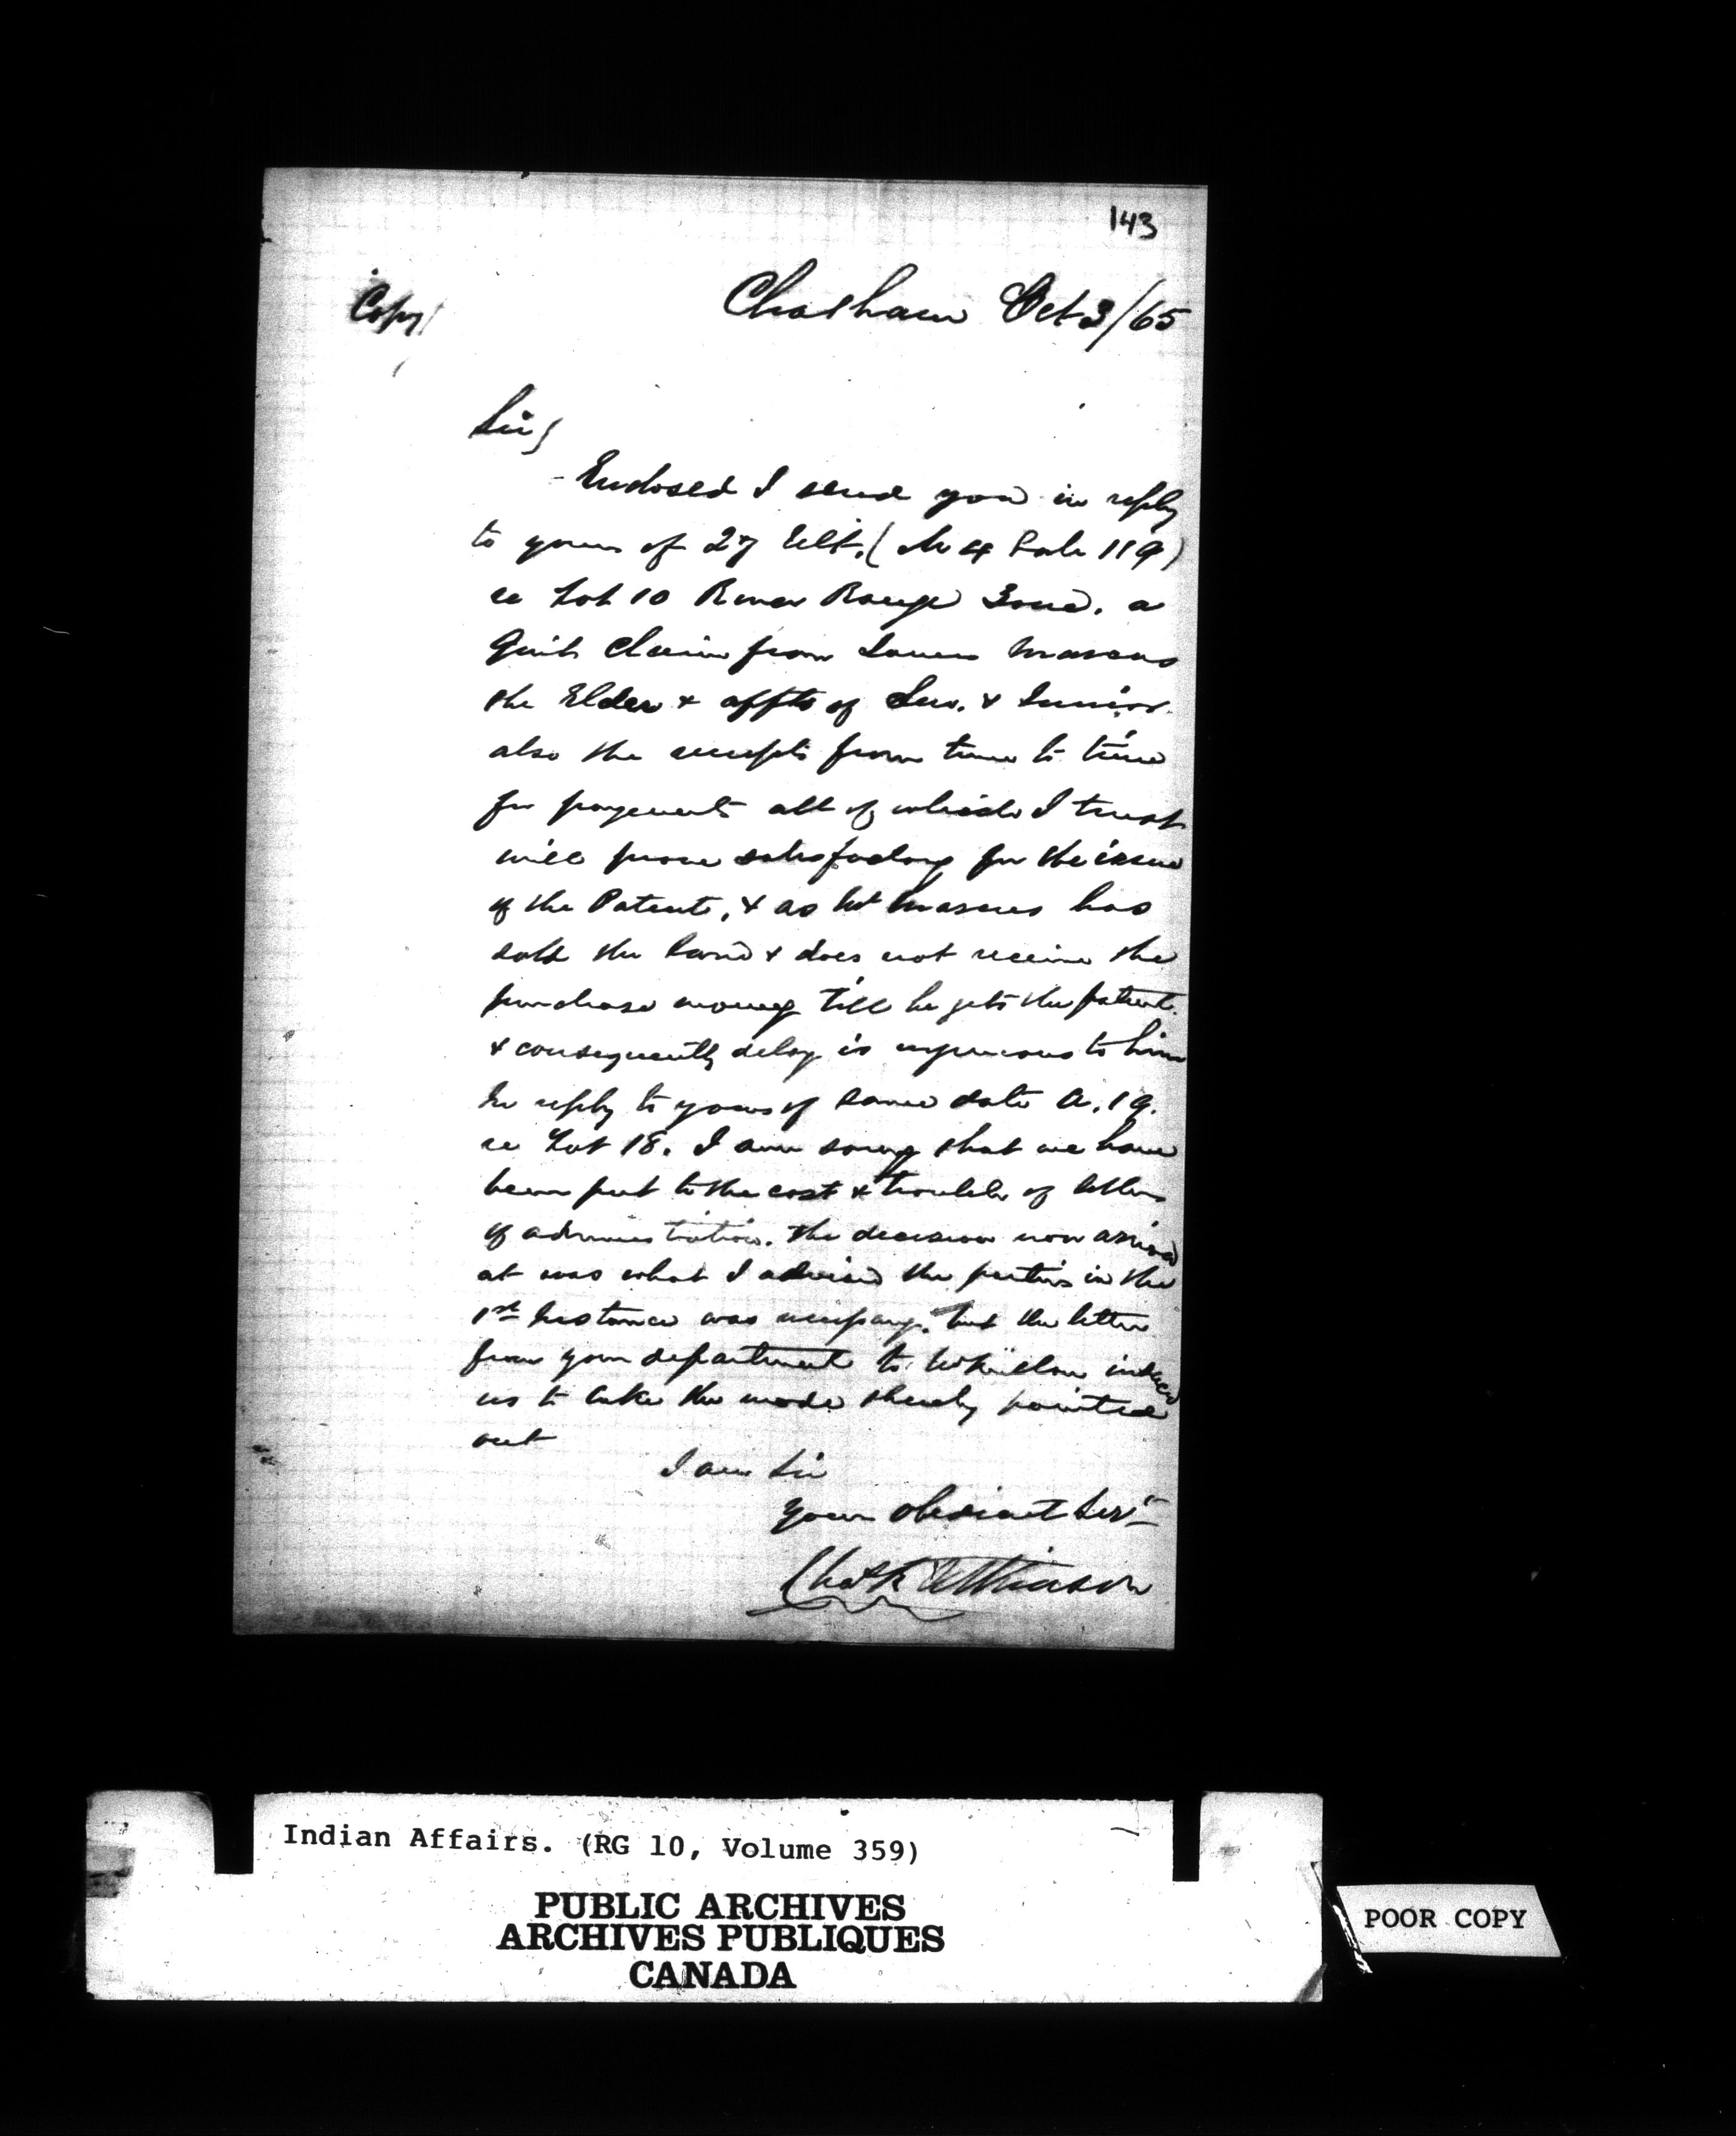 143
Copy
Chatham Oct 3/65
Sir
Enclosed I send you in reply
to yours of 27 Ult. ( Sale 119)
re Lot 10 River Range Zone. a
Quit Claim from James Marcus
the Elder & affts of Sen. & Junior
also the receipts from time to time
for payments all of which I trust
will prove satisfactory for the issue
of the Patent, & as Mr Marcus has
sold the land & does not receive the
purchase money till he gets the patent
& consequently delay is injurious to him
In reply to yours of same date A. 19.
re Lot 18. I am sorry that we have
been put to the cost & trouble of letters
of administration. The decision now arrived
at was what I advised the parties in the
1st Instance was necessary. but the letter
from your department to induced
us to take the mode thereby pointed
out
I am Sir
Your obedient Servt
Chas R Atkinson
Indian Affairs. (RG 10, Volume 359)
PUBLIC ARCHIVES
ARCHIVES PUBLIQUES
CANADA
POOR COPY